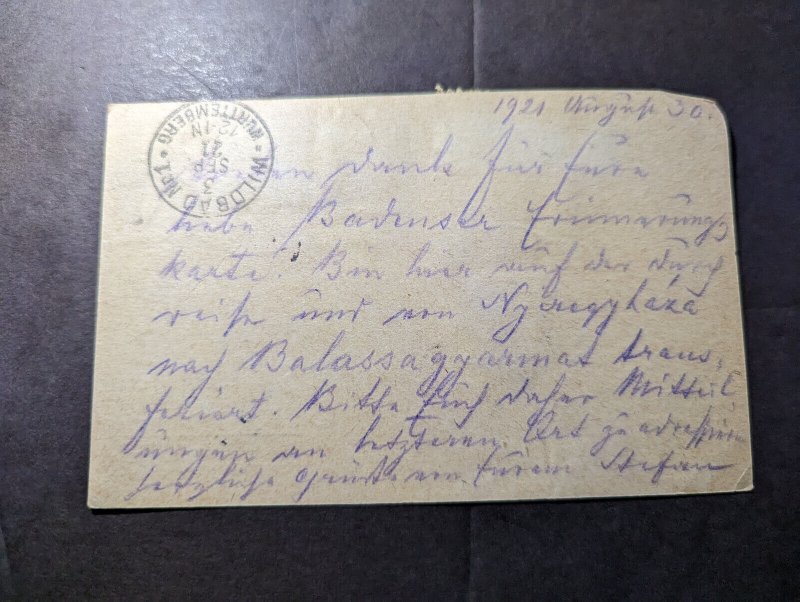 1921 August 30.
WILDBAD Nr 1 * WÜRTTEMBERG *
3 SEP 21 12-1N
Dank für Eure
liebe Badenser Erinnerungs
karte. Bin hier auf der Durch
reise und von Nyiregyháza
nach Balassagyarmat trans,
feriert. Bitte Euch daher Mitteil
ungen an letzteren Ort zu adressieren
herzliche Grüsse von Eurem Stefan